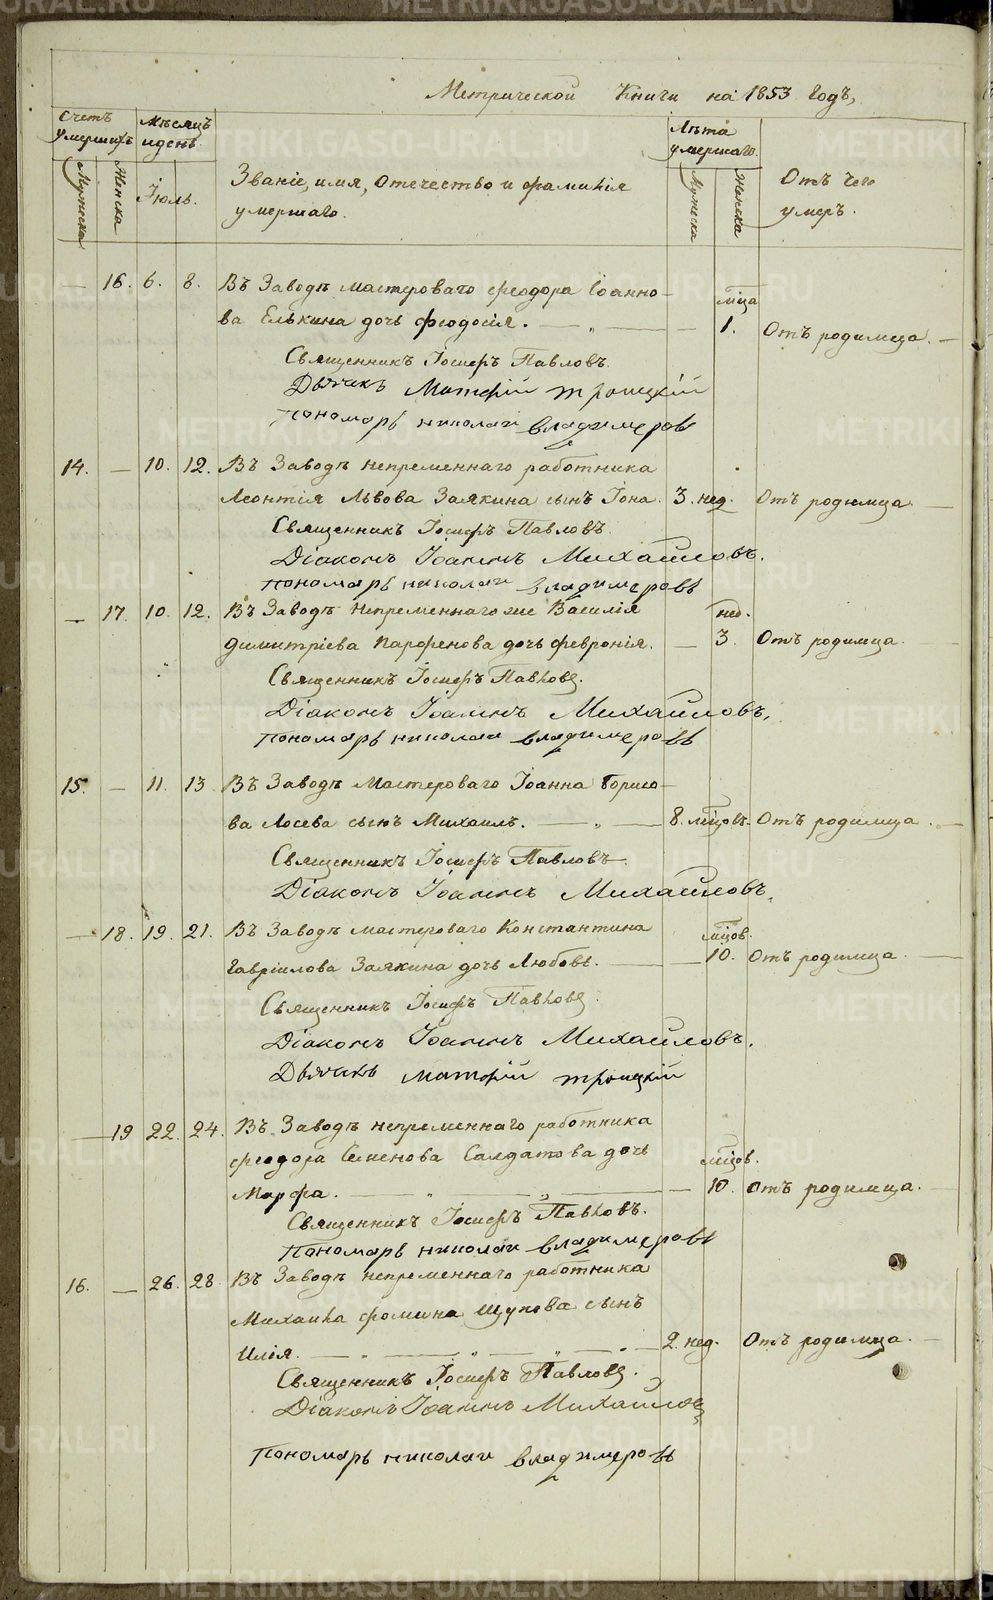 Метрической Книги на 1853 годъ,
Счетъ умершихъ
Мѣсяцъ и день.
Лѣта умершаго.
Мужеска
Женска
Іюль.
Званіе, имя, отечество и фамилія
умершаго.
Мужеска
Женска
Отъ чего
умеръ.
— 16. 6. 8. Въ Заводѣ мастероваго Ѳеодора Іоанно-
мѣца
ва Елькина дочь Ѳеодосія. — 1. Отъ родимца. —
Священникъ Іосифъ Павловъ.
Дьячикъ Матфій Троицкій
пономарь николаи владимеровъ
14. — 10. 12. Въ Заводѣ непременнаго работника
Леонтія Львова Заякина сынъ Іона. 3. нед. Отъ родимца
Священникъ Іосифъ Павловъ
Діаконъ Іоаннъ Михайловъ.
пономарь николаи владимеровъ
— 17. 10. 12. Въ Заводѣ непременнаго же Василія
нед.
Димитріева Парфенова дочь Февронія. — 3. Отъ родимца.
Священникъ Іосифъ Павловъ.
Діаконъ Іоаннъ Михайловъ.
пономарь николаи владимеровъ
15. — 11. 13 Въ Заводѣ Мастероваго Іоанна Борисо-
ва Лосева сынъ Михаилъ. — 8. мѣцовъ. Отъ родимца. —
Священникъ Іосифъ Павловъ
Діаконъ Іоаннъ Михайловъ.
— 18. 19. 21. Въ Заводѣ мастероваго Константина
мѣцов.
Гавріилова Заякина дочь Любовь. — 10. Отъ родимца. —
Священникъ Іосифъ Павловъ.
Діаконъ Іоаннъ Михайловъ.
Дьячикъ матфій троицкій
— 19 22. 24. Въ Заводѣ непременнаго работника
Ѳеодора Семенова Салдатова дочь
мѣцов.
Марфа. — 10. Отъ родимца. —
Священникъ Іосифъ Павловъ.
пономарь николаи владимеровъ
16. — 26. 28. Въ Заводѣ непременнаго работника
Михаила Фомина Щукова сынъ
Илія. — 2. нед. Отъ родимца. —
Священникъ Іосифъ Павловъ.
Діаконъ Іоаннъ Михайловъ
пономарь николаи владимеровъ
METRIKI.GASO-URAL.RU